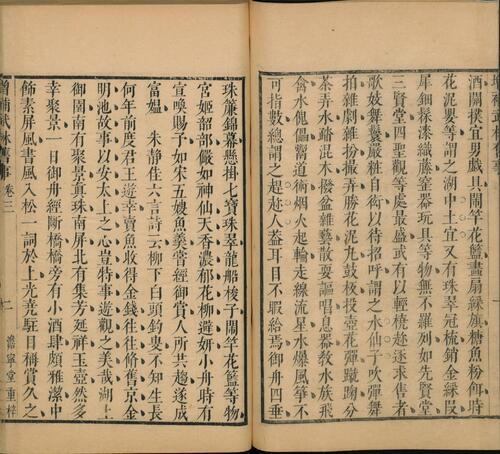 酒關撲宜男戲具鬧竿花籃畫扇綵旗糖魚粉餌時
花泥嬰等謂之湖中土宜又有珠翠冠梳銷金綵段
犀鈿髹漆織藤窰器玩具等物無不羅列如先賢堂
三賢堂四聖觀等處最盛或有以輕橈趁逐求售者
歌妓舞鬟嚴粧自衒以待招呼謂之水仙子吹彈舞
拍雜劇雜扮撮弄勝花泥九鼓板投壺花彈蹴踘分
茶弄水踏混木撥盆雜藝散耍謳唱息器教水族飛
禽水傀儡鬻道術烟火起輪走線流星水爆風箏不
可指數總謂之趕趁人葢耳目不暇給焉御舟四垂
珠簾錦幕懸掛七寶珠翠龍船梭子鬧竿花籃等物
宮姬韶部儼如神仙天香濃郁花柳避妍小舟時有
宣喚賜予如宋五嫂魚羹嘗經御賞人所共趨遂成
富媼　朱靜佳六言詩云柳下白頭釣叟不知生長
何年前度君王遊幸賣魚收得金錢往往脩舊京金
明池故事以安太上之心豈特事遊觀之美哉湖上
御園南有聚景真珠南屏北有集芳延祥玉壺然多
幸聚景一日御舟經斷橋橋旁有小酒肆頗雅潔中
飾素屏風書風入松一詞於上光堯駐目稱賞久之
增補武林舊事 卷三 二 澹寧堂重梓